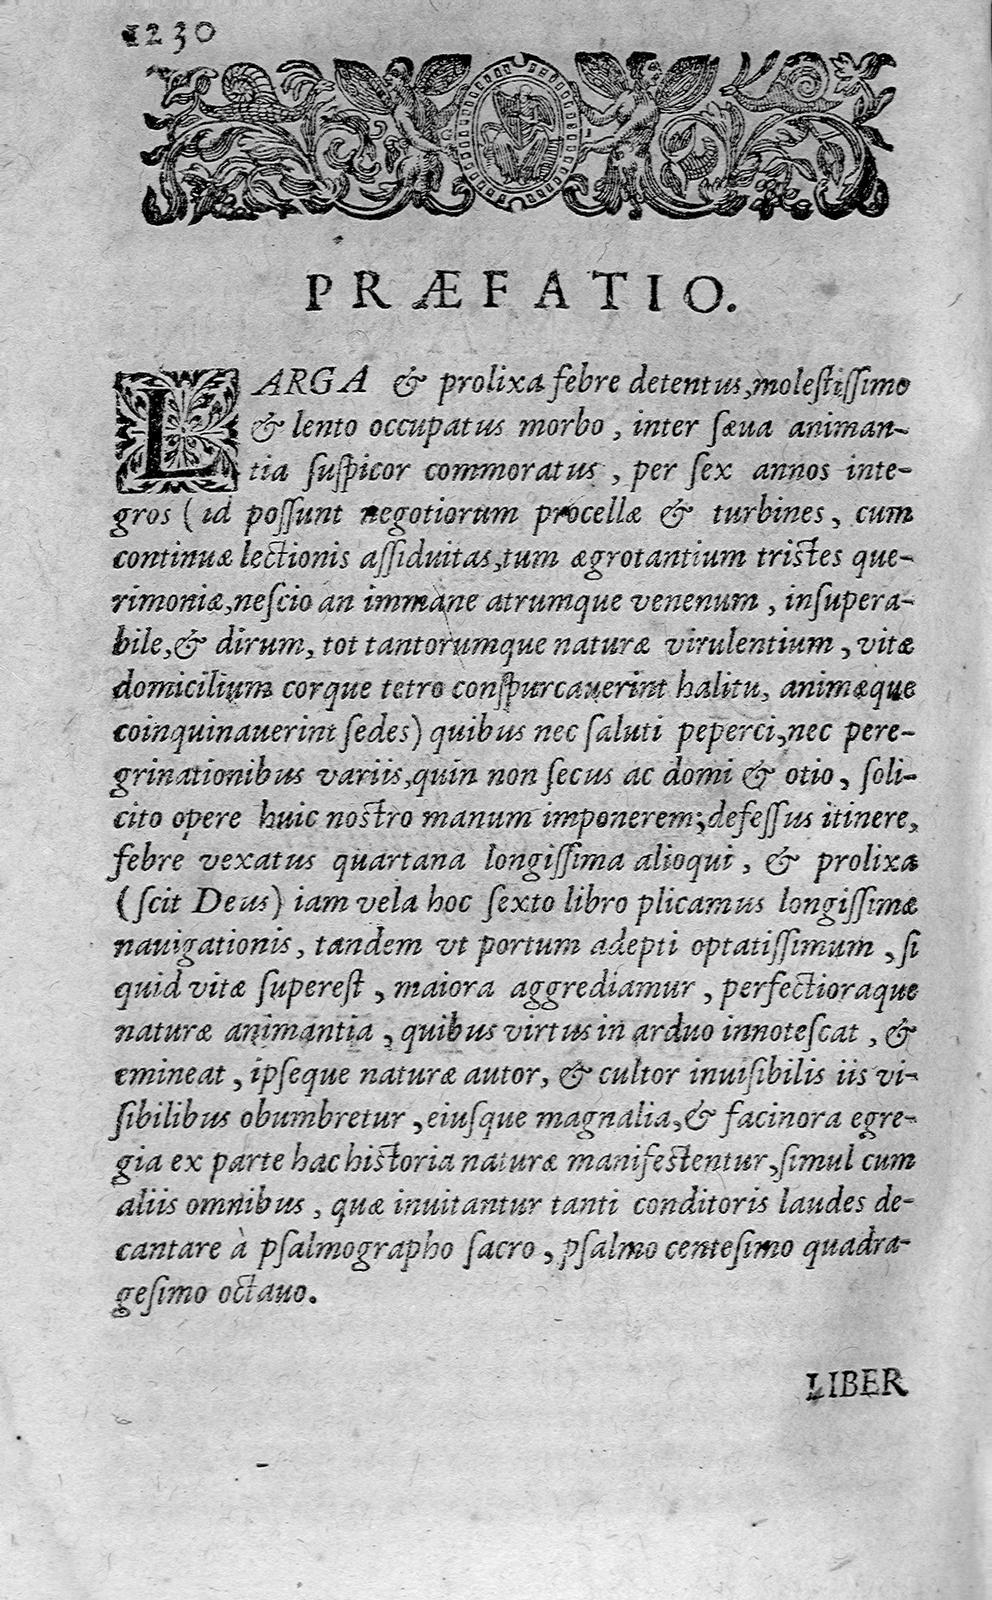 1230
PRÆFATIO.
LARGA & prolixa febre detentus, molestissimo
& lento occupatus morbo, inter sæua animan-
tia suspicor commoratus, per sex annos inte-
gros (id possunt negotiorum procellæ & turbines, cum
continuæ lectionis assiduitas, tum ægrotantium tristes que-
rimoniæ, nescio an immane atrumque venenum, insupera-
bile, & dirum, tot tantorumque naturæ virulentium, vitæ
domicilium corque tetro conspurcauerint halitu, animæque
coinquinauerint sedes) quibus nec saluti peperci, nec pere-
grinationibus variis, quin non secus ac domi & otio, soli-
cito opere huic nostro manum imponerem; defessus itinere,
febre vexatus quartana longissima alioqui, & prolixa
(scit Deus) iam vela hoc sexto libro plicamus longissimæ
nauigationis, tandem vt portum adepti optatissimum, si
quid vitæ superest, maiora aggrediamur, perfectioraque
naturæ animantia, quibus virtus in arduo innotescat, &
emineat, ipseque naturæ autor, & cultor inuisibilis iis vi-
sibilibus obumbretur, eiusque magnalia, & facinora egre-
gia ex parte hac historia naturæ manifestentur, simul cum
aliis omnibus, quæ inuitantur tanti conditoris laudes de-
cantare à psalmographo sacro, psalmo centesimo quadra-
gesimo octauo.
LIBER